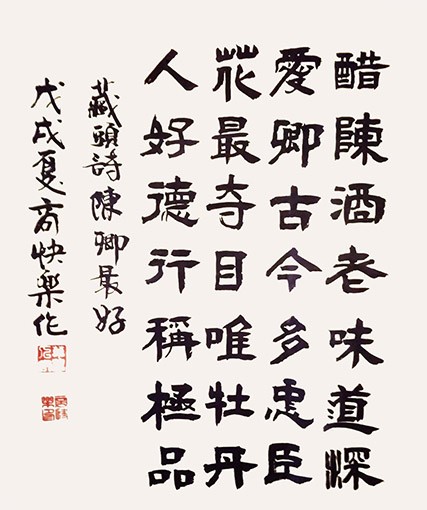 醋陳酒老味道深
愛卿古今多忠臣
花最奇目唯牡丹
人好德行稱極品
藏頭詩陳卿最好
戊戌夏商快樂作